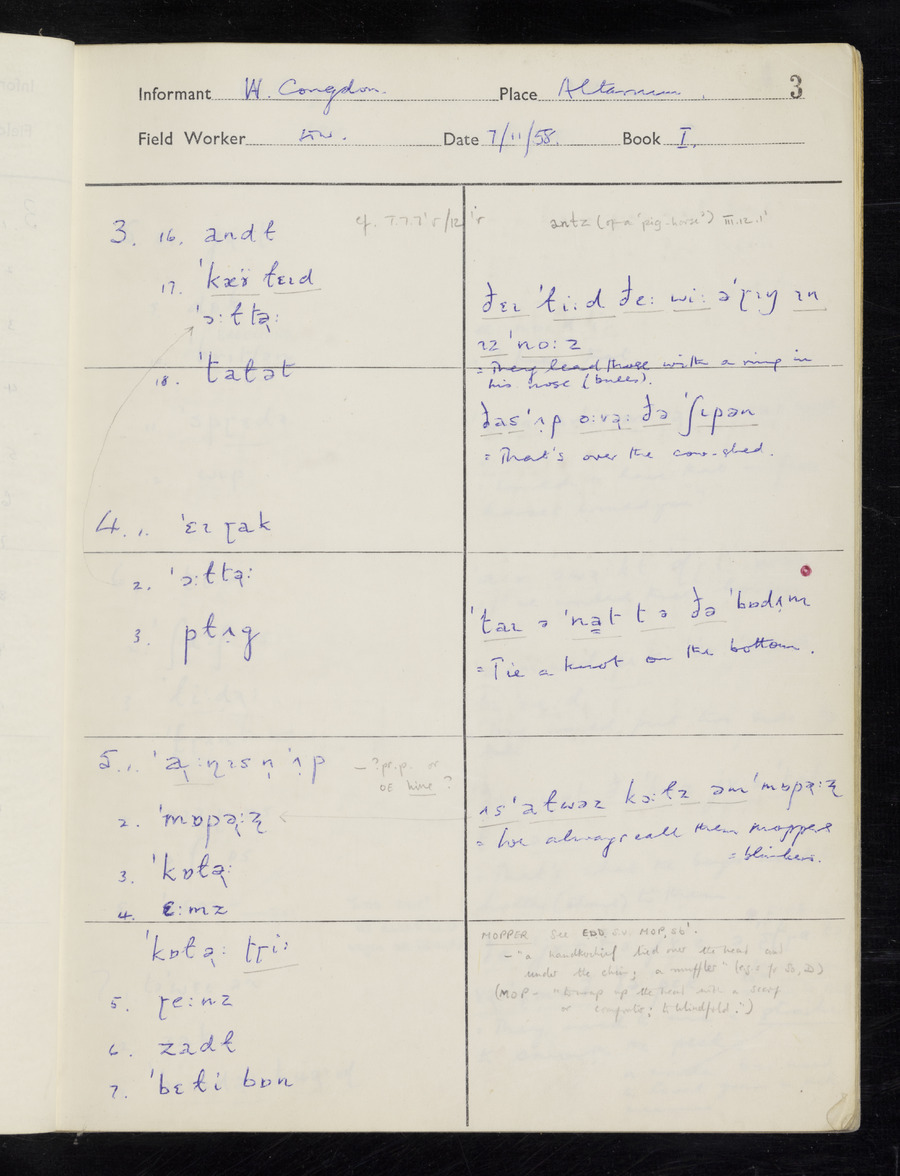 Informant W. Congdon. Place Altarnun. 3
Field Worker Date 7/11/58. Book I.
3. 16. andɫ
17. ˈkæɤ̈ ɫɛɪd
ˈɔ:ɫtə̢:
18. ˈtaɫət
4. 1. ˈɛɪ ɽak
2. ˈɔ:ɫtə̢:
3. pɫɪg
5. 1.
— ? pr.p. or
OE hine ?
2. ˈmɒpə̢:ʐ
3. ˈkɒɫə̢:
4. ɛ:mz
ˈkɒɫə̢: tɽi:
5. ɽe:nz
6. zadɫ
7. ˈbɛɫi bɒn
antz (of a 'pig-horse') III.12.1'
ðɛɪ ˈɫi:d ðe: wi: ə ˈɽɪŋ ɪn
ɪz ˈno:z
= They lead those with a ring in
his nose (bulls).
ðas ˈɪp o:və̢: ðə ˈʃɪpən
= That's over the cow-shed.
ˈtaɪ ə ˈnat t ə ðə ˈbɒdɪm
= Tie a knot on the bottom.
ɪs ˈaɫwəz kɔ:ɫz əm ˈmɒpə̢:ʐ
= We always call them moppers
= blinkers.
MOPPER See EDD, s.v. MOP, sb¹.
— "a handkerchief tied over the head and
under the chin; a muffler"
(MOP — "to wrap up the head with a scarf
or comforter; to blindfold.")